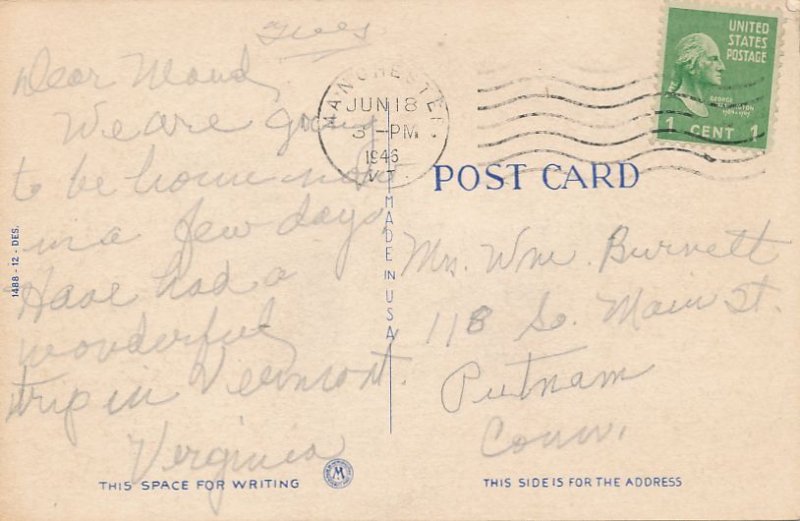 Tues
Dear Maud,
We are going
to be home now
in a few days,
Have had a
wonderful
trip in Vermont.
Verginia
THIS SPACE FOR WRITING
1488 - 12 - DES.
MANCHESTER
JUN 18
3 - PM
1946
VT.
MADE IN USA
UNITED
STATES
POSTAGE
GEORGE
WASHINGTON
1 CENT 1
POST CARD
Mrs. Wm. Burnett
118 So. Main St.
Putnam
Conn.
W
THIS SIDE IS FOR THE ADDRESS